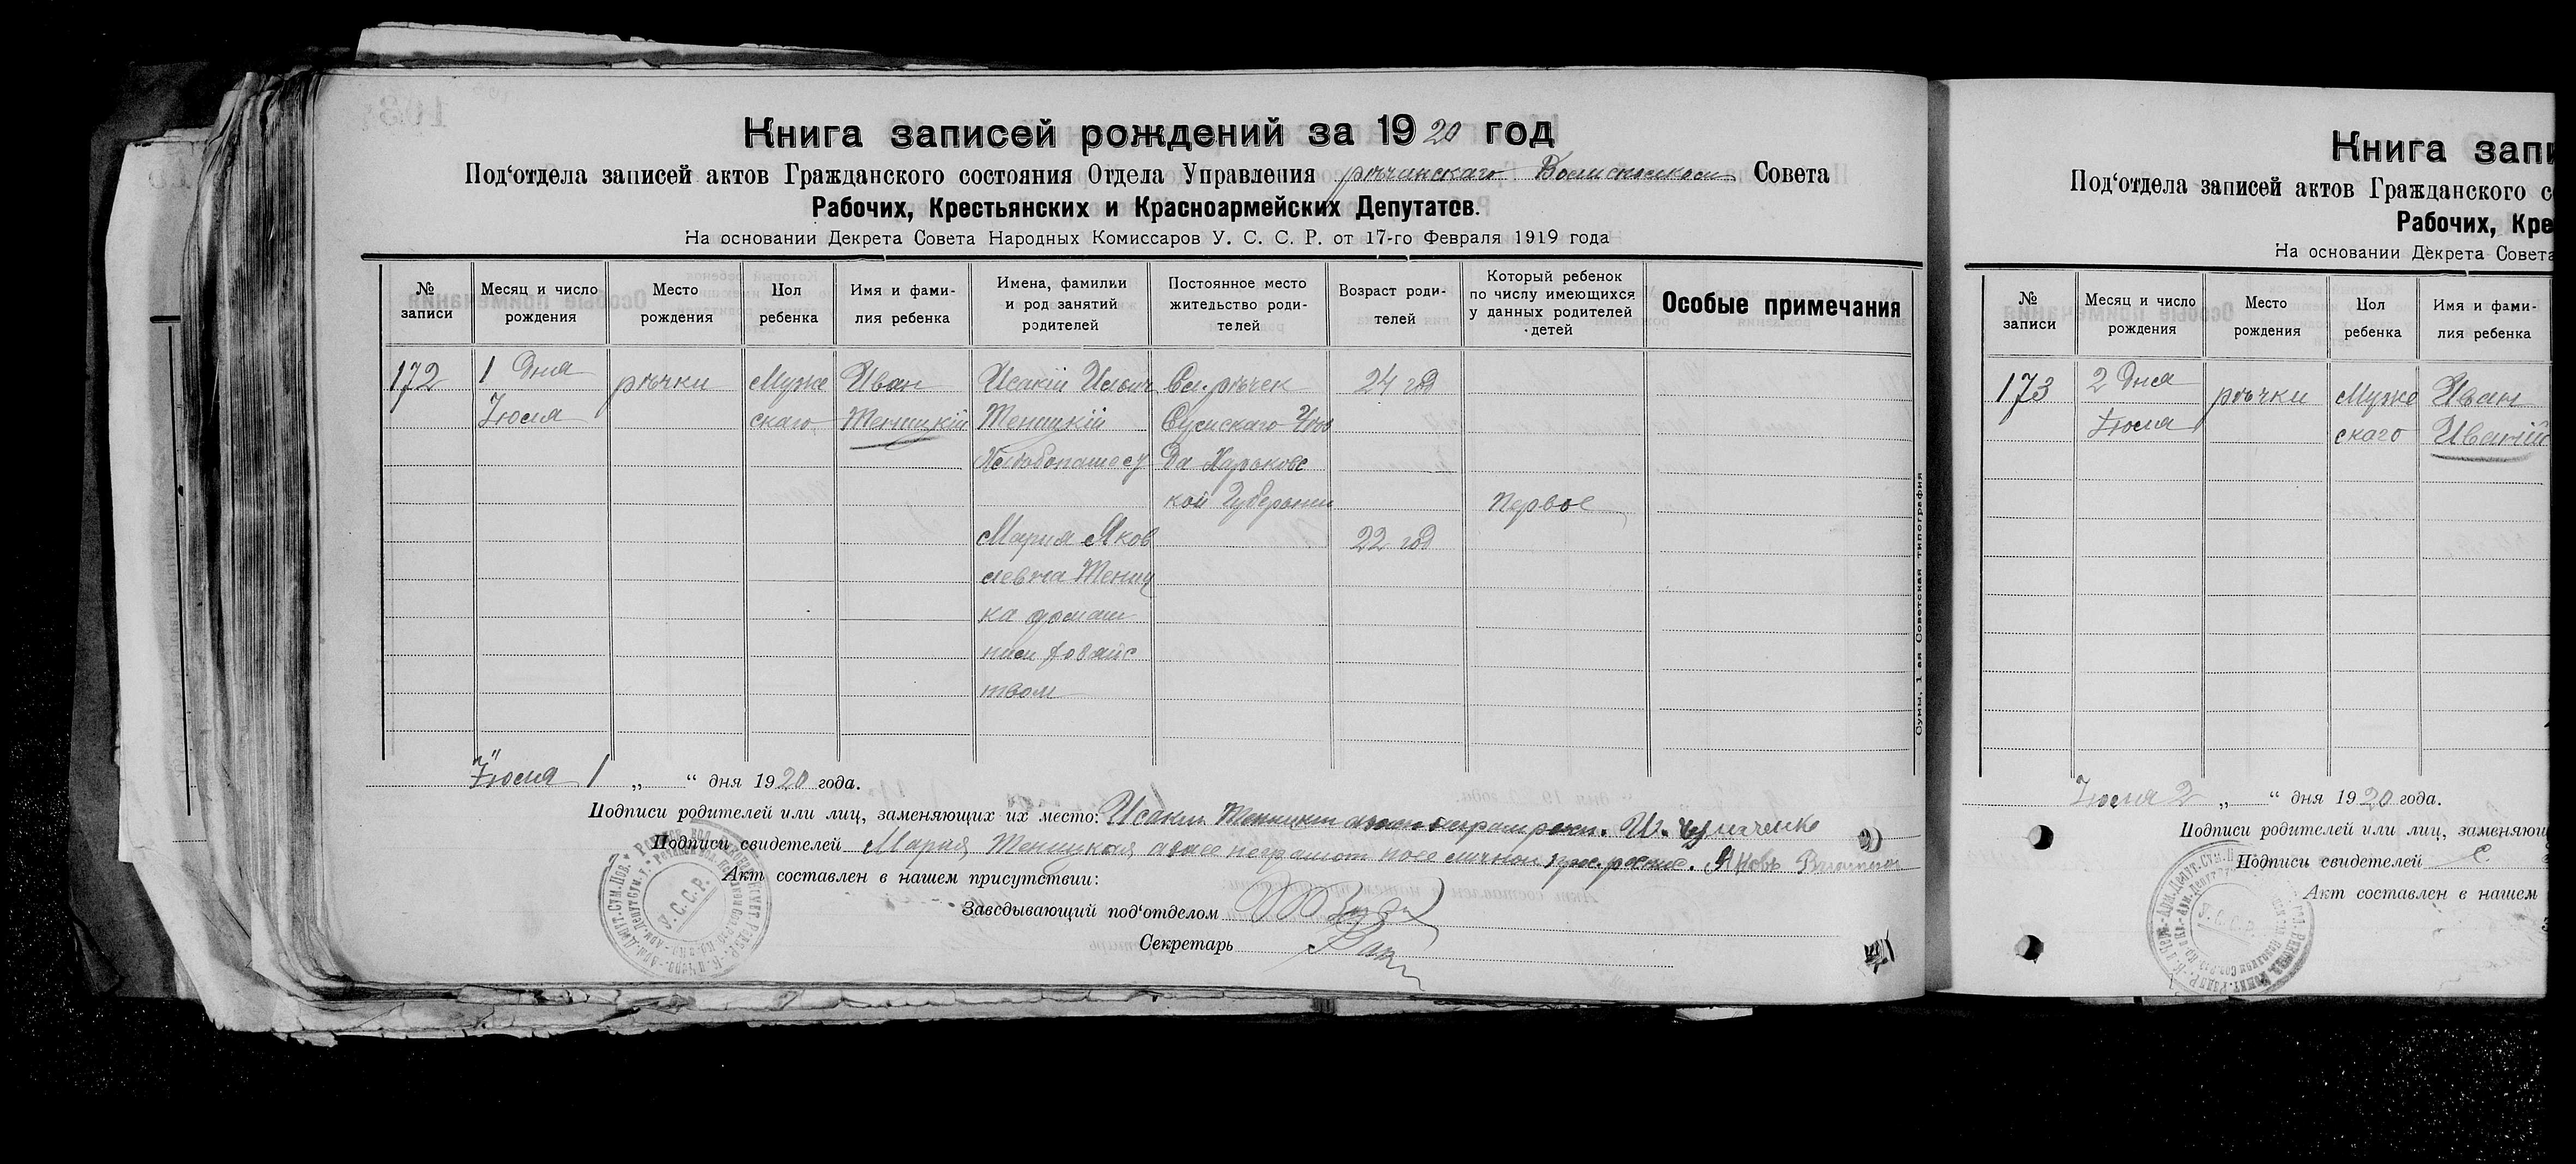 Книга записей рождений за 1920 год
Под‘отдела записей актов Гражданского состояния Отдела Управления рѣчанскаго Совета
Рабочих, Крестьянских и Красноармейских Депутатов.
На основании Декрета Совета Народных Комиссаров У. С. С. Р. от 17-го Февраля 1919 года
№ записи
Месяц и число рождения
Место рождения
Пол ребенка
Имя и фами-лия ребенка
Имена, фамилии и род занятий родителей
Постоянное место жительство роди-телей
Возраст роди-телей
Который ребенок по числу имеющихся у данных родителей детей
Особые примечания
172
1 Дня
Іюля
рѣчки
Муже
скаго
Иван
Теницкій
Исакій Ильич
Теницкій
Хлѣбопашес
Мария Яков
левна Тениц
ка домаш
ним хозяйс
твом
Сл. рѣчек
Сумскаго Уѣз
да Харьковс
кой Губернии
24 год
22 год
Первое
Сумы, 1-ая Советская типография
Іюля 1 „ “ дня 1920 года.
Подписи родителей или лиц, заменяющих их место: Исакий Теницкий
Подписи свидетелей Мария Теницкая а за нее неграмот по ее личной прос. росп. Яковъ
Акт составлен в нашем присутствии:
Заведывающий под‘отделом
Секретарь
У.С.С.Р.
Книга запи
Под‘отдела записей актов Гражданского с
Рабочих, Кре
На основании Декрета Совета
№ записи
Месяц и число рождения
Место рождения
Пол ребенка
Имя и фами-лия ребенка
173
2 Дня
Іюля
рѣчки
Муже
скаго
Иван
Іюля 2 „ “ дня 1920 года.
Подписи родителей или лиц, заменяющ
Подписи свидетелей
Акт составлен в нашем
У.С.С.Р.